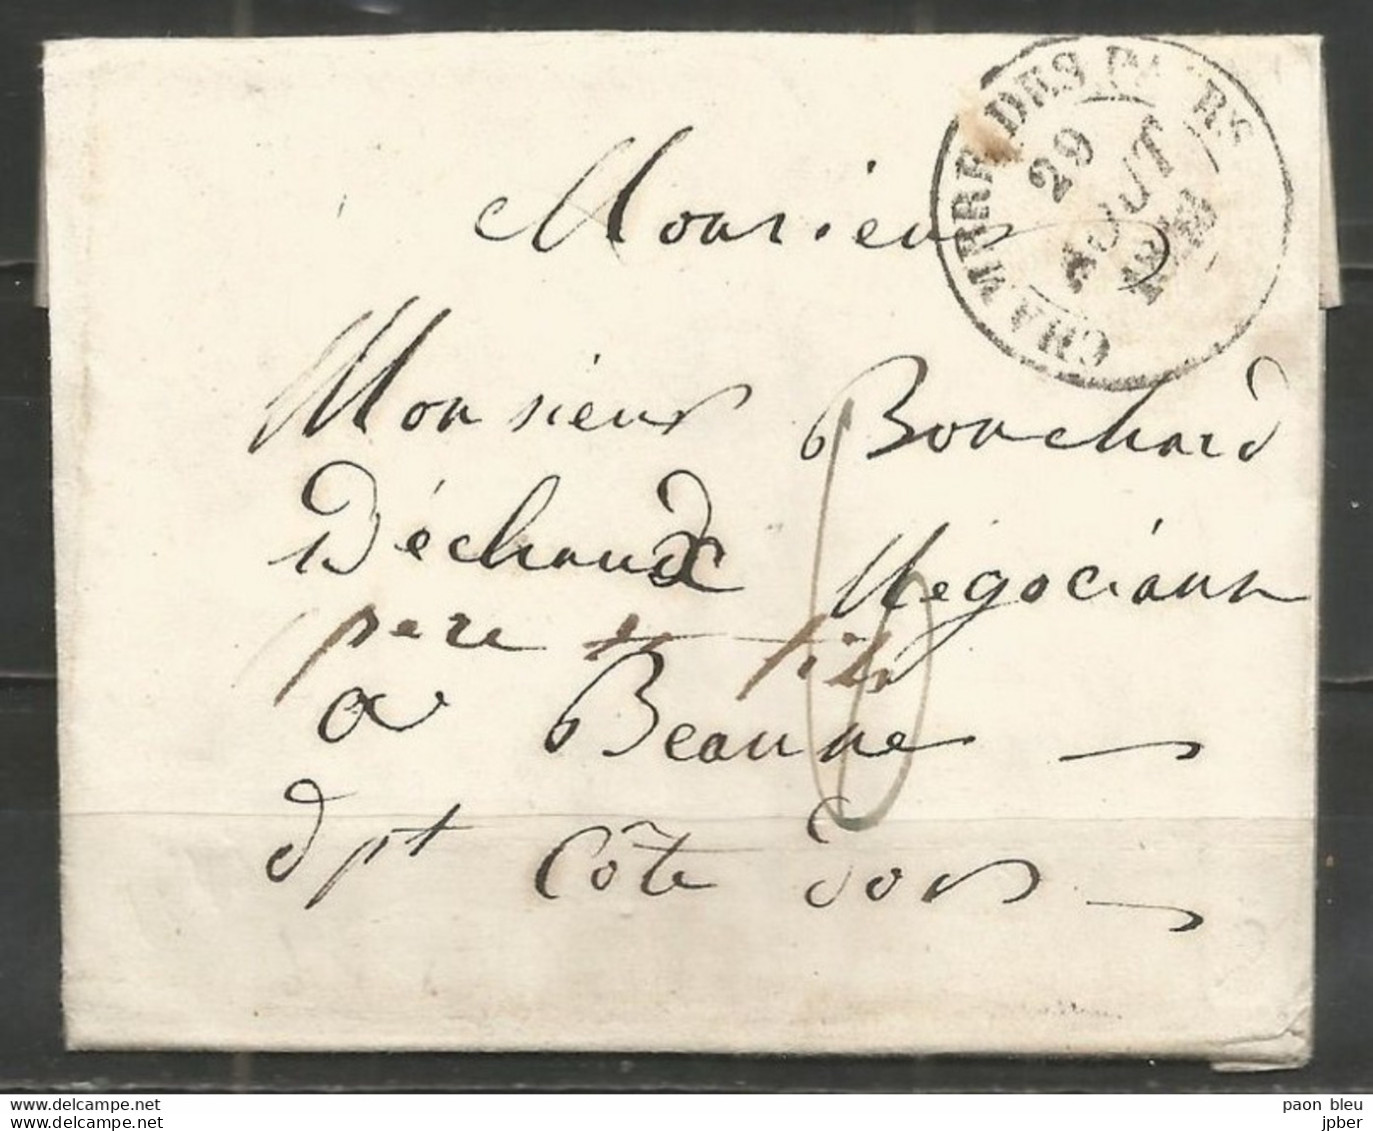 CHAMBRE DES PAIRS
29
AOUT
Monsieur
Monsieur Bouchard
Déchaux Négociant
pere et fils
a Beaune
dpt Côte dor
6
www.delcampe.net
www.delcampe.net
paon bleu
jpber